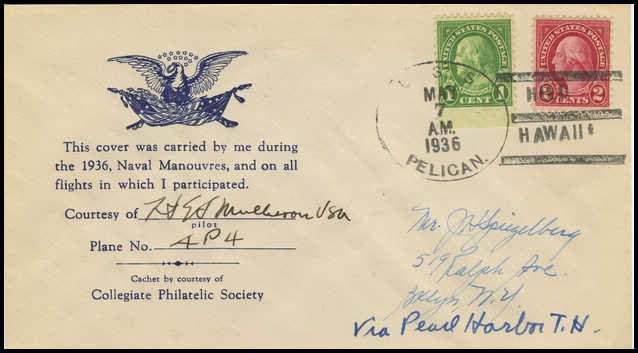 UNITED STATES POSTAGE
1 CENT 1
UNITED STATES POSTAGE
2 CENTS 2
U.S.S.
MAY
7
A.M.
1936
PELICAN.
HAWAII
This cover was carried by me during
the 1936, Naval Manouvres, and on all
flights in which I participated.
Courtesy of Mulheron USN
pilot
Plane No. 4P4
Cachet by courtesy of
Collegiate Philatelic Society
Mr. J H Spiegelberg
519 Ralph Ave.
Bklyn N.Y.
Via Pearl Harbor T.H.